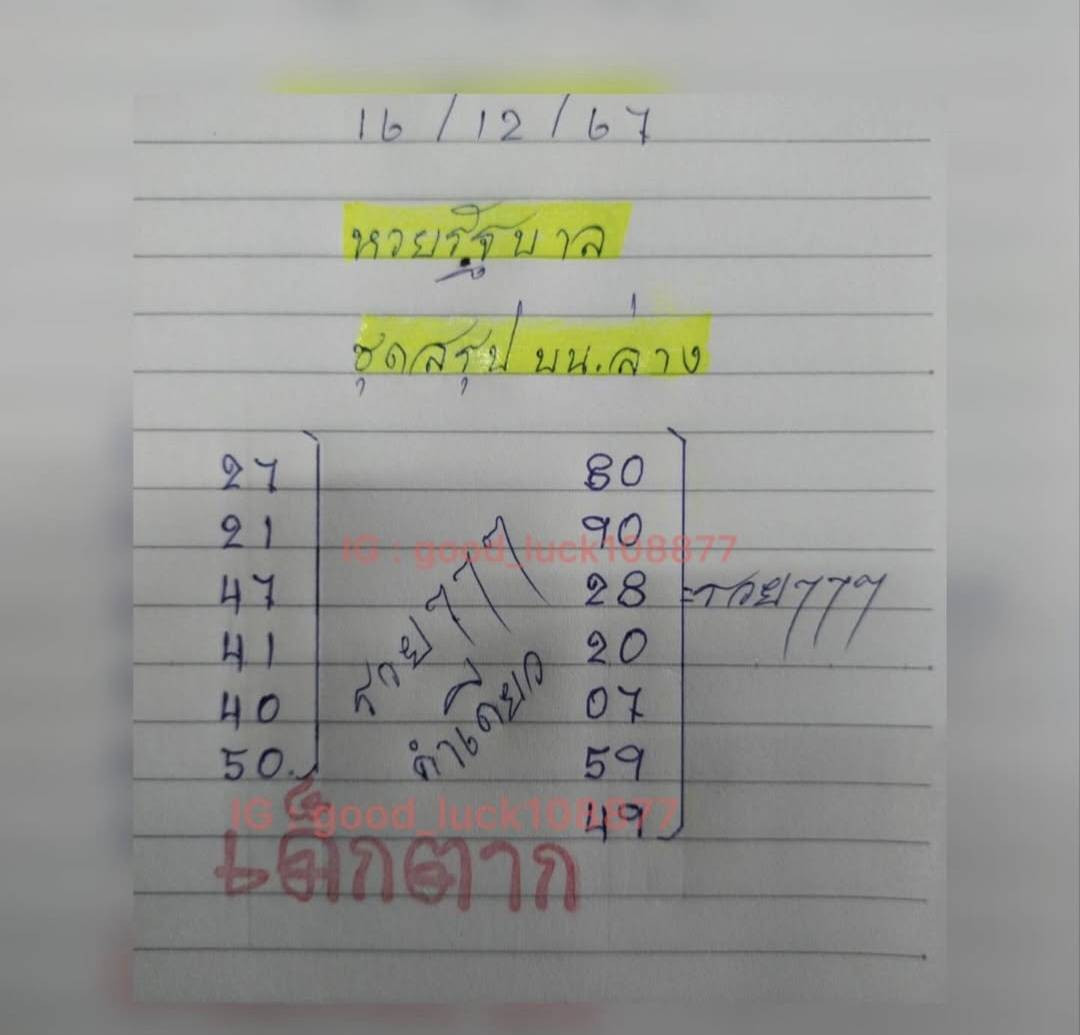 16/12/67
หวยรัฐบาล
ชุดสรุป บน.ล่าง
27
21
47
41
40
50.
รวยๆๆๆ
คำเดียว
80
90
28
20
07
59
49
=รวยๆๆๆ
IG : good_luck108877
IG : good_luck108877
เด็กตาก